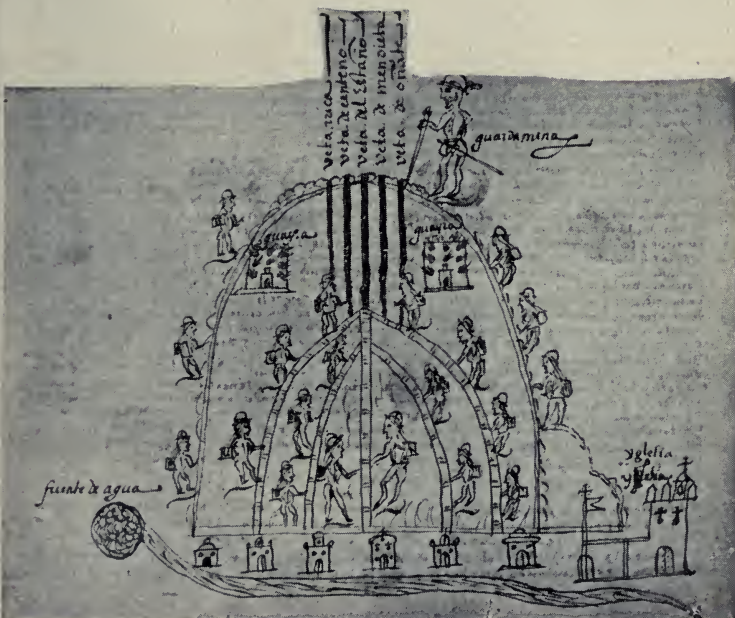 veta rica
veta de centeno
veta del estaño
veta de mendieta
veta de oñate
guardamina
guayra
guayra
fuente de agua
yglesia